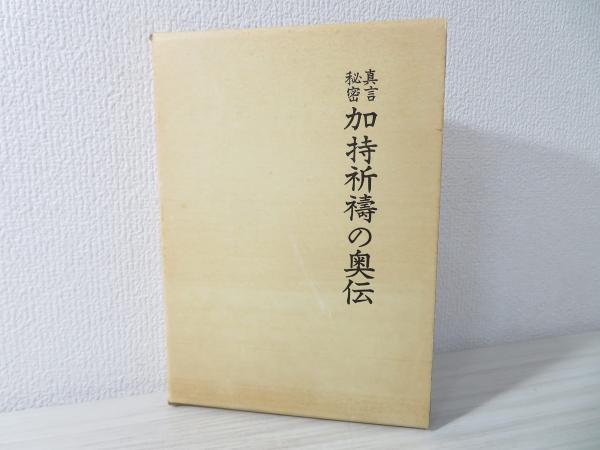 真言
秘密
加持祈禱の奥伝